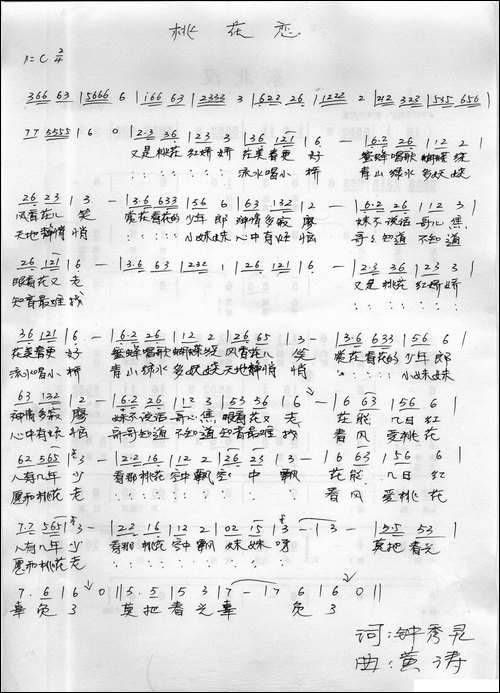 桃花恋
1=C 2/4
366 63 | 5666 6 | i66 63 | 2333 3 | 622 26 | 1222 2 | 212 323 | 535 656 |
77 5555 | 6 0 | 2·3 36 | 123 3 | 36 121 | 6 - | 6·2 26 | 112 2 |
又是桃花 红娇娇 花美春更 好 蜜蜂唱歌 蝴蝶
· · · · · · · 流水唱小 桥 青山绿水 多妖娆
26 23 | 3 - | 3·6 633 | 156 6 | 63 132 | 12 - | 6·2 26 | 112 3 |
风香花儿 笑 爱花看花的 少年郎 神情多寂 寥 妹不说话 哥心焦
天地静悄 悄 · · · · · 小妹妹 心中有烦 恼 哥哥知道 不知道
26 121 | 6 - | 3·6 63 | 232 1 | 26 121 | 6 - | 2·3 26 | 123 3 |
眼看花又 老 又是桃花 红娇娇
知音最难 找
36 121 | 6 - | 6·2 26 | 112 2 | 26 65 | 3 - | 3·6 633 | 156 6 |
花美春更 好 蜜蜂唱歌 蝴蝶 风香花儿 笑 爱花看花的 少年郎
流水唱小 桥 青山绿水 多妖娆 天地静悄 悄 · · · · · 小妹妹
63 132 | 12 - | 6·2 26 | 112 3 | 53 36 | 6 - | 6 63 | 56 6 |
神情多寂 寥 妹不说话 哥心焦 眼看花又 老 花能 几日 红
心中有烦 恼 哥哥知道 不知道 知音最难 找 春风 爱桃花
62 565 | 3 - | 2·2 16 | 112 2 | 26 23 | 3 - | 6 63 | 56 6 |
人有几年 少 看那桃花 空中飘 空 中 飘 花能 几日 红
愿和桃花 老 · · · · · · · · · · 春风 爱桃花
7·7 565 | 3 - | 22 16 | 112 2 | 02 15 | 3 - | 3 - | 55 53 |
人有几年 少 看那桃花 空中飘 妹妹 呀 莫把春光
愿和桃花 老
7· 6 | 6 0 || 5·5 | 5 3 | 7 - | 7 6 | 6 0 ||
辜负 了 莫把 春光 辜 负 了
词:钟秀灵
曲:黄涛